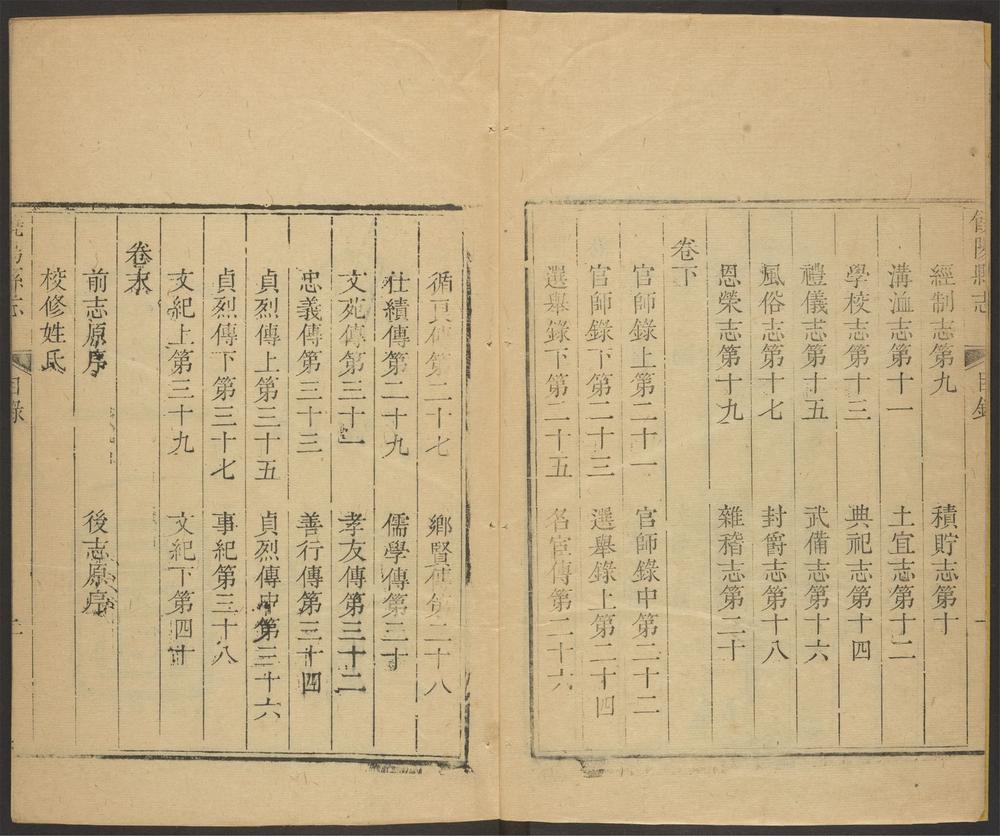 饒陽縣志 目錄 一
經制志第九 積貯志第十
溝洫志第十一 土宜志第十二
學校志第十三 典祀志第十四
禮儀志第十五 武備志第十六
風俗志第十七 封爵志第十八
恩榮志第十九 雜稽志第二十
卷下
官師錄上第二十一 官師錄中第二十二
官師錄下第二十三 選舉錄上第二十四
選舉錄下第二十五 名宦傳第二十六
循吏傳第二十七 鄉賢傳第二十八
仕績傳第二十九 儒學傳第三十
文苑傳第三十一 孝友傳第三十二
忠義傳第三十三 善行傳第三十四
貞烈傳上第三十五 貞烈傳中第三十六
貞烈傳下第三十七 事紀第三十八
文紀上第三十九 文紀下第四十
卷末
前志原序 後志原序
校修姓氏
饒陽縣志 目錄 二